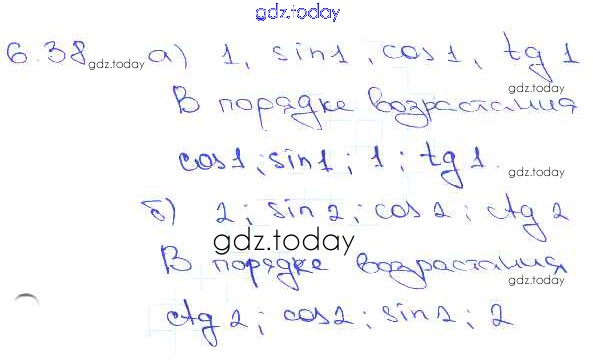 gdz.today
6.38 gdz.today а) 1, sin1, cos1, tg 1
gdz.today
В порядке возрастания
cos1; sin1; 1; tg1.
gdz.today
б) 2; sin2; cos2; ctg2
gdz.today
gdz.today
В порядке возрастания
gdz.today
ctg2; cos2; sin2; 2